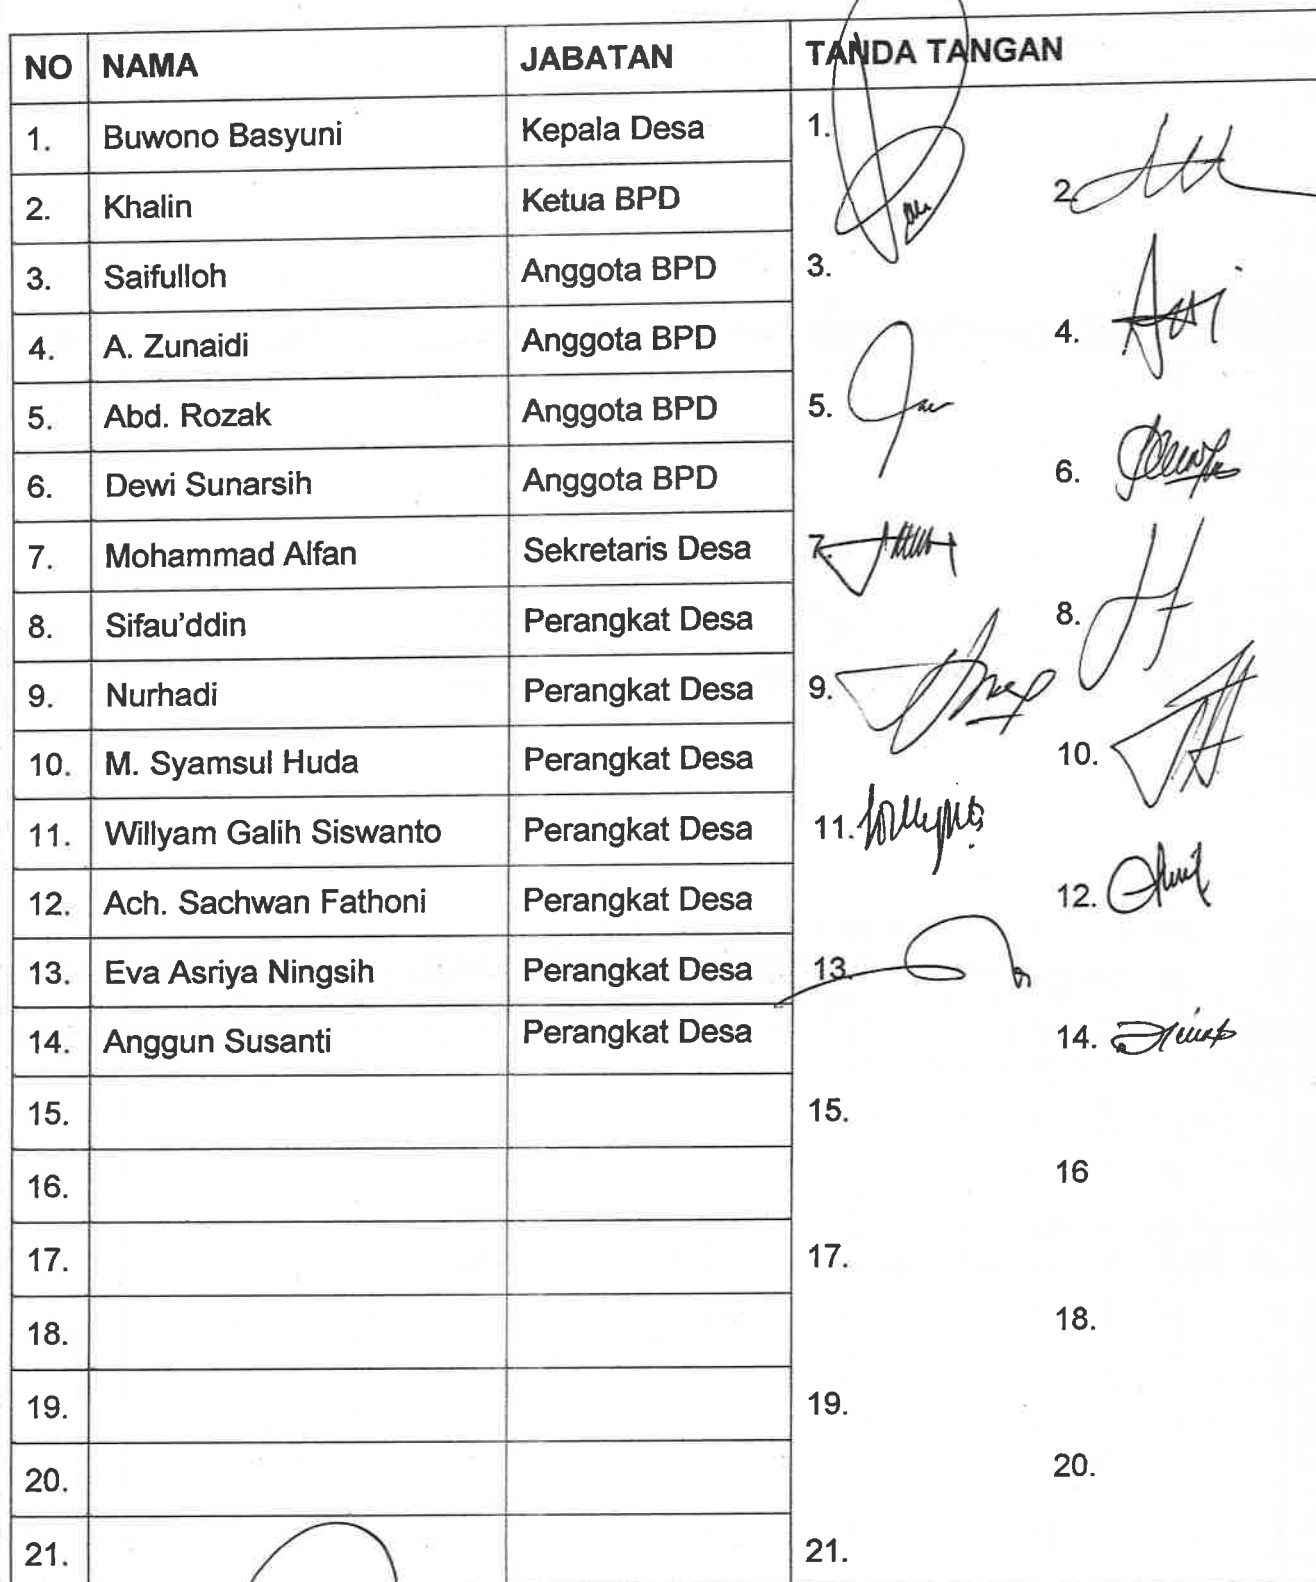 NO NAMA JABATAN TANDA TANGAN
1. Buwono Basyuni Kepala Desa 1.
2. Khalin Ketua BPD 2.
3. Saifulloh Anggota BPD 3.
4. A. Zunaidi Anggota BPD 4.
5. Abd. Rozak Anggota BPD 5.
6. Dewi Sunarsih Anggota BPD 6.
7. Mohammad Alfan Sekretaris Desa 7.
8. Sifau'ddin Perangkat Desa 8.
9. Nurhadi Perangkat Desa 9.
10. M. Syamsul Huda Perangkat Desa 10.
11. Willyam Galih Siswanto Perangkat Desa 11.
12. Ach. Sachwan Fathoni Perangkat Desa 12.
13. Eva Asriya Ningsih Perangkat Desa 13.
14. Anggun Susanti Perangkat Desa 14.
15. 15.
16. 16
17. 17.
18. 18.
19. 19.
20. 20.
21. 21.